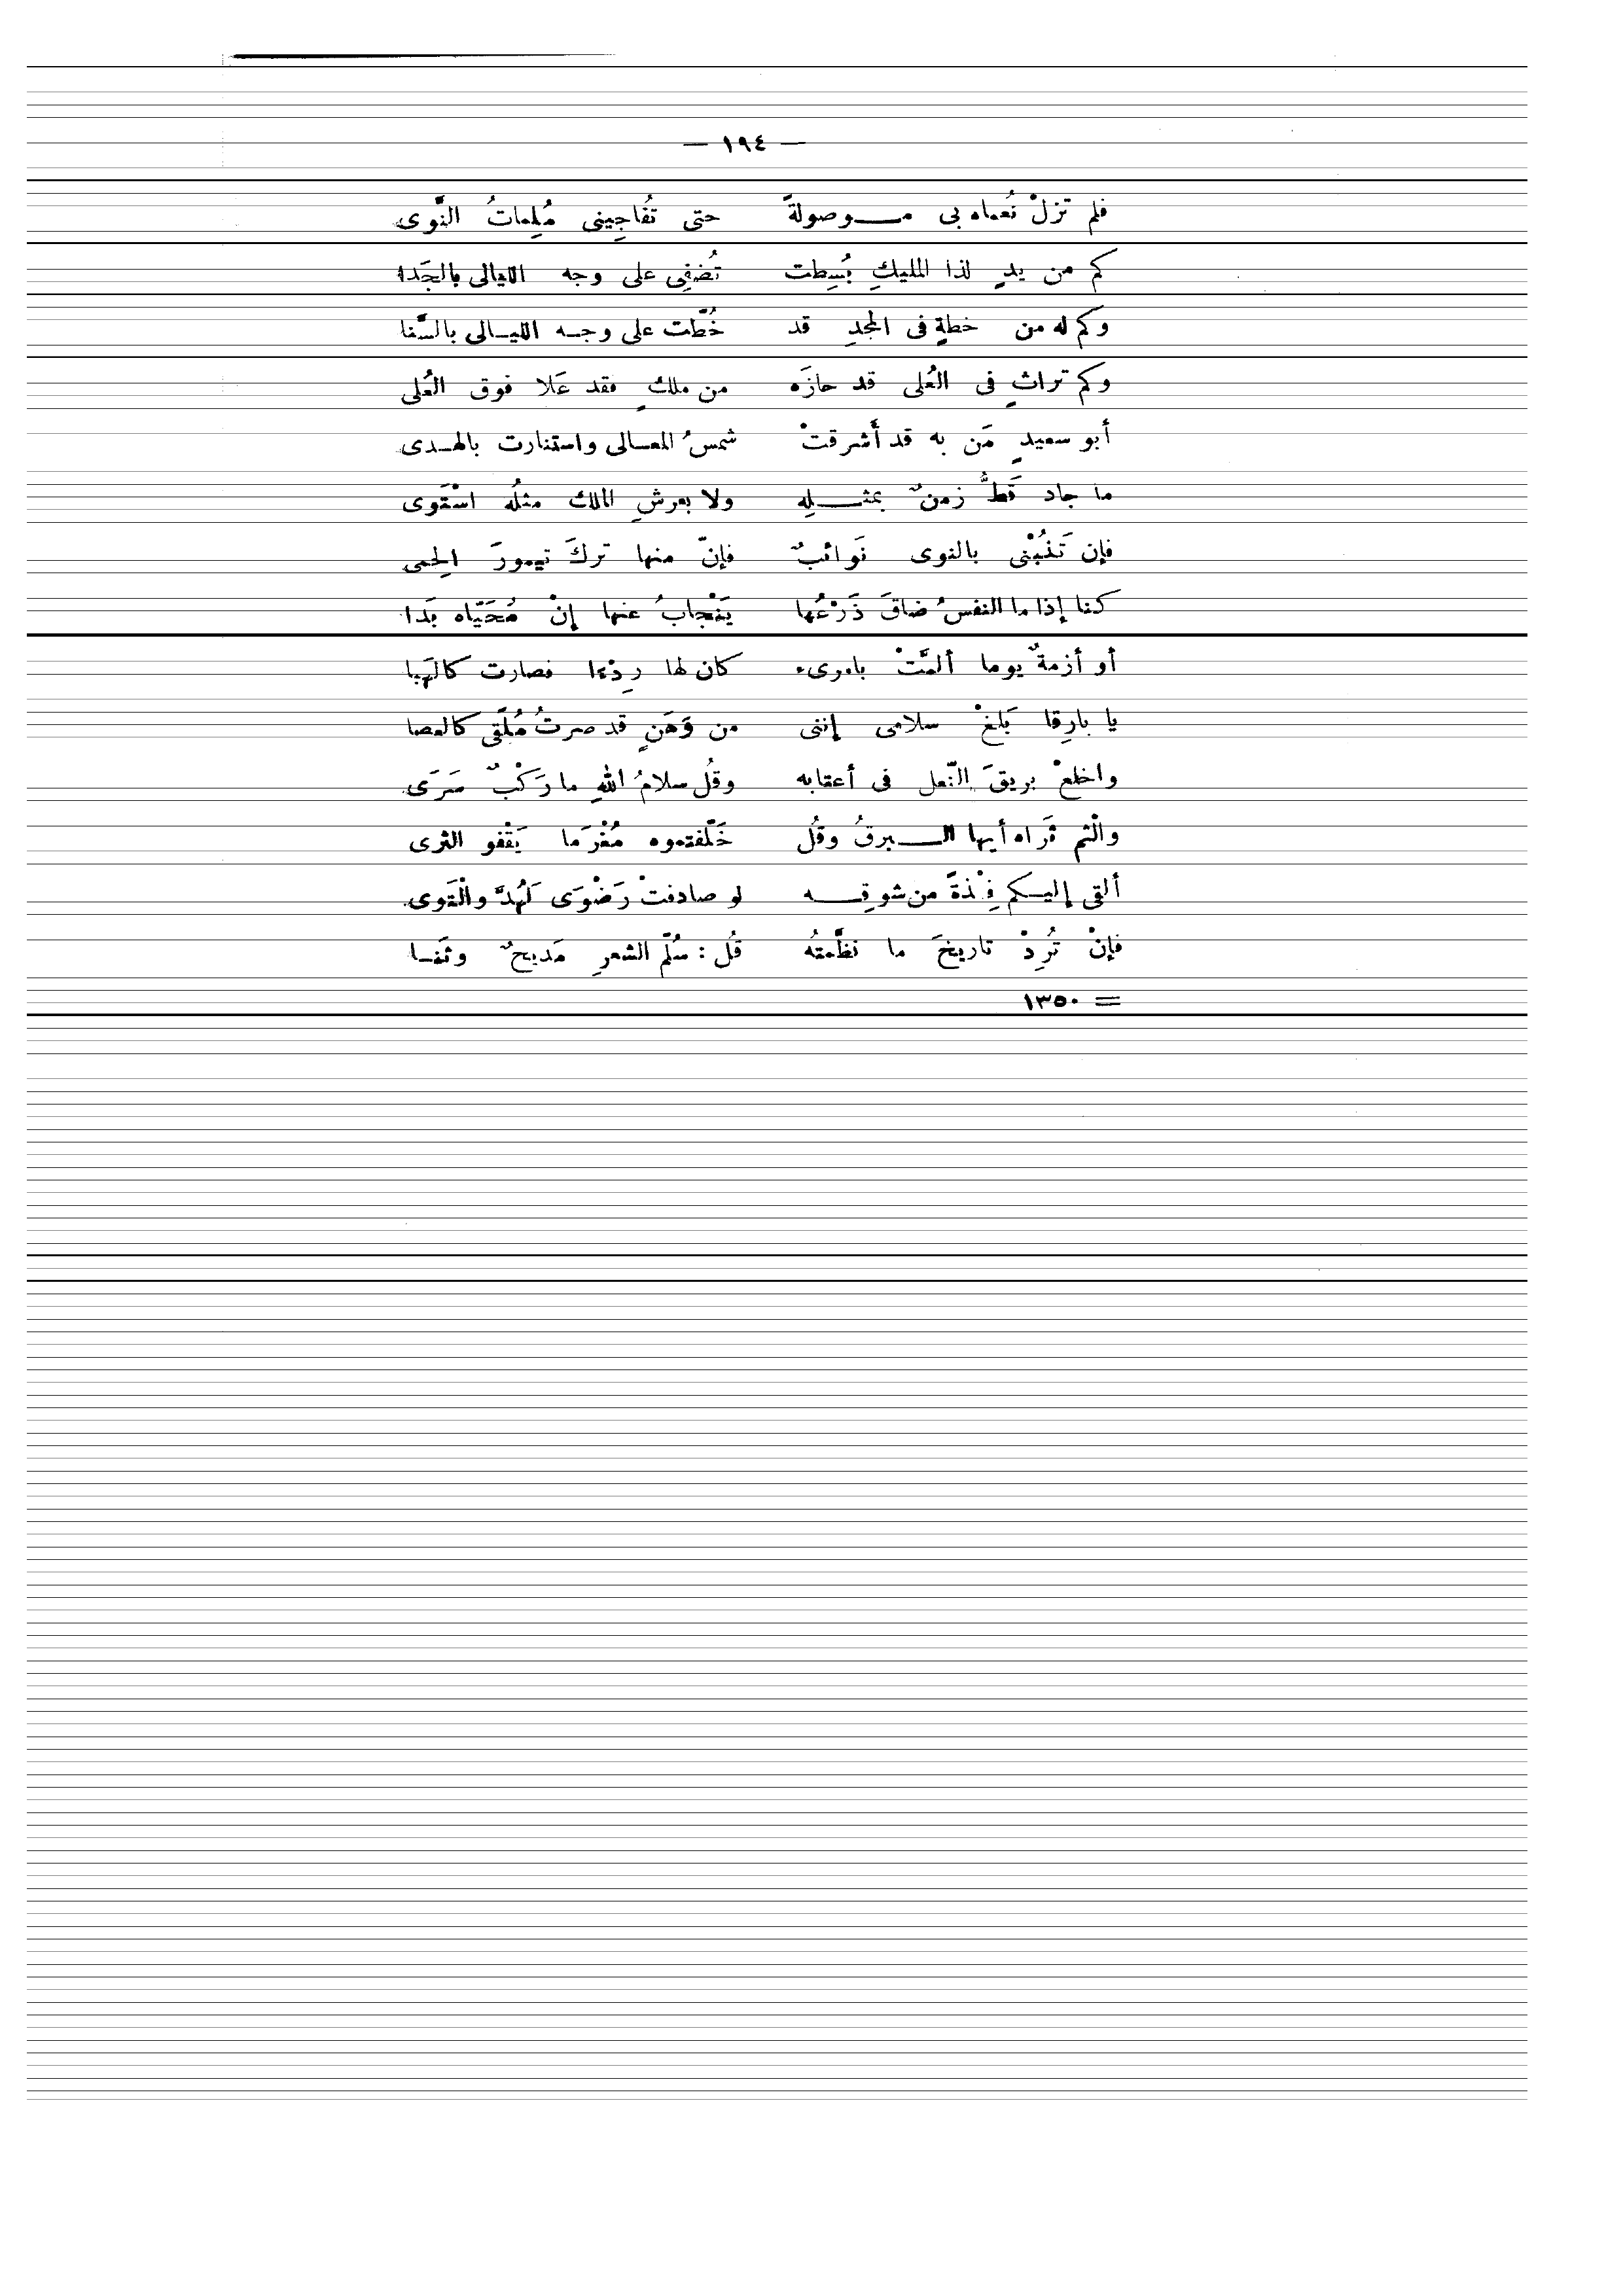 — ١٩٤ —
فلم تزلْ نُعماه بى موصولةً حتى تُفاجِينى مُلِماتُ النَّوى
كم من يدٍ لذا المليكِ بُسِطت تُضفِى على وجه الليالى بالجَدا
وكم له من خطةٍ فى المجدِ قد خُطّت على وجه الليالى بالسَّنا
وكم تراثٍ فى العُلى قد حازَه من ملكٍ فقد عَلا فوق العُلى
أبو سعيدٍ مَن به قد أَشرقتْ شمسُ المعالى واستنارت بالهدى
ما جاد قَطُّ زمنٌ بمثلِه ولا بعرشِ الملك مثلُه اسْتَوى
فإن تَنُبْنى بالنوى نَوائبٌ فإنّ منها تركَ تيمورَ الحِمى
كنا إذا ما النفسُ ضاقَ ذَرْعُها يَنْجابُ عنها إنْ مُحَيّاه بَدا
أو أزمةٌ يوما ألمَّتْ بامرىء كان لها رِدْءا فصارت كالهَبا
يا بارِقا بَلغْ سلامى إننى من وَهَنٍ قد صرتُ مُلقًى كالعصا
واخلعْ بريقَ النّعل فى أعقابه وقُل سلامُ اللهِ ما رَكْبٌ سَرَى
والْثم ثَراه أيها البرقُ وقُل خَلّفتموه مُغْرَما يَقْفو الثرى
ألقى إليكم فِلْذةً من شوقِه لو صادفتْ رَضْوَى لَهُدَّ والْتَوى
فإنْ تُرِدْ تاريخَ ما نظَّمتُه قُل : سُلّم الشعرِ مَديحٌ وثَنا
= ١٣٥٠